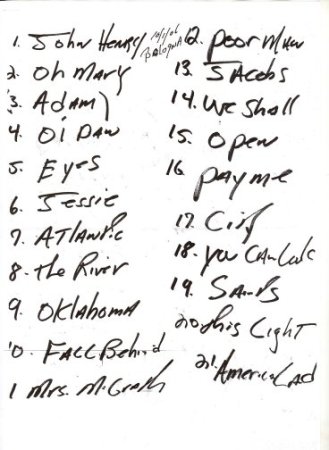 1. John Henry 10/1/06 Bologna
2. Oh Mary
3. Adam)
4. Ol Dan
5. Eyes
6. Jessie
7. Atlantic
8. the River
9. Oklahoma
10. Fall Behind
1 Mrs. McGrath
12. poor man
13. Jacobs
14. we shall
15. open
16 pay me
17. City
18. you can look
19. Saints
20. this Light
21. America Land